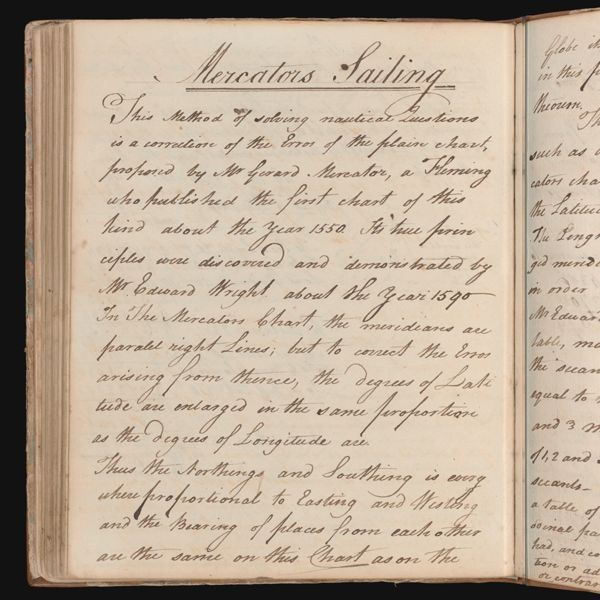 Mercators Sailing
This Method of solving nautical Questions
is a correction of the Error of the plain chart,
proposed by Mr Gerard Mercator, a Fleming
who published the first chart of this
kind about the Year 1550. Its true prin
ciples were discovered and demonstrated by
Mr Edward Wright about the Year 1590
In The Mercators Chart, the meridians are
paralel right Lines; but to correct the Error
arising from thence, the degrees of Lati
tude are enlarged in the same proportion
as the degrees of Longitude are.
Thus the Northings and Southing is every
where proportional to Easting and Westing
and the Bearing of places from each other
are the same on this Chart as on the
Globe
in this
theorem.
such as
cators cha
the Latitud
The Leng
ged merid
in order
Mr Edward
table,
the secan
equal to
and 3
of 1, 2 and
secants
a table of
had, and
tion or ad
or contrar